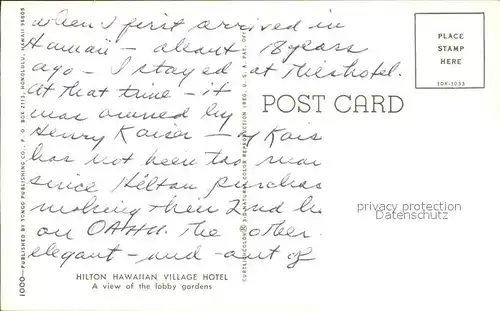 when I first arrived in
Hawaii - about 18 years
ago - I stayed at this hotel.
At that time - it
was owned by
Henry Kaiser - Kais
has not been too near
since Hilton purchas
making their 2nd h
on OAHU. The other
elegant - and - out of
PLACE
STAMP
HERE
10K-1033
POST CARD
privacy protection
Datenschutz
HILTON HAWAIIAN VILLAGE HOTEL
A view of the lobby gardens
1000—PUBLISHED BY TONGG PUBLISHING CO., P. O. BOX 2113, HONOLULU, HAWAII 96805
CURTEICHCOLOR® 3-D NATURAL COLOR REPRODUCTION (REG. U.S.A. PAT. OFF.)